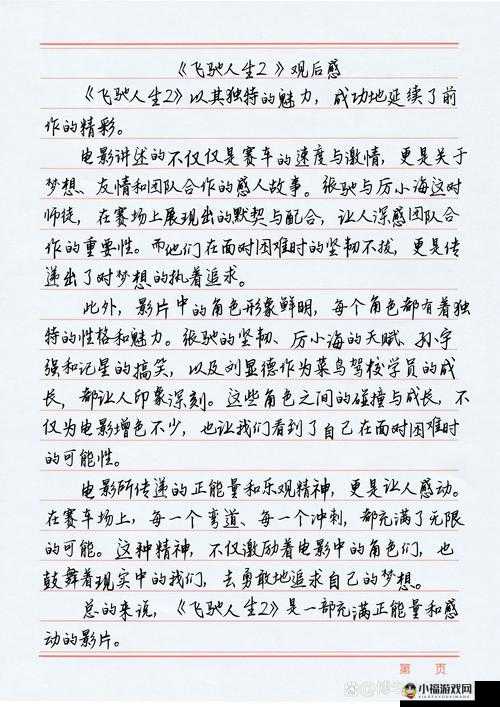 《飞驰人生2》观后感
《飞驰人生2》以其独特的魅力，成功地延续了前
作的精彩。
电影讲述的不仅仅是赛车的速度与激情，更是关于
梦想、友情和团队合作的感人故事。张驰与厉小海这对
师徒，在赛场上展现出的默契与配合，让人深感团队合
作的重要性。而他们在面对困难时的坚韧不拔，更是传
递出了对梦想的执着追求。
此外，影片中的角色形象鲜明，每个角色都有着独
特的性格和魅力。张驰的坚韧、厉小海的天赋、孙宇
强和记星的搞笑，以及刘显德作为菜鸟驾校学员的成
长，都让人印象深刻。这些角色之间的碰撞与成长，不
仅为电影增色不少，也让我们看到了自己在面对困难时
的可能性。
电影所传递的正能量和乐观精神，更是让人感动。
在赛车场上，每一个弯道、每一个冲刺，都充满了无限
的可能。这种精神，不仅激励着电影中的角色们，也
鼓舞着现实中的我们，去勇敢地追求自己的梦想。
总的来说，《飞驰人生2》是一部充满正能量和感
动的影片。
第 页
小福游戏网